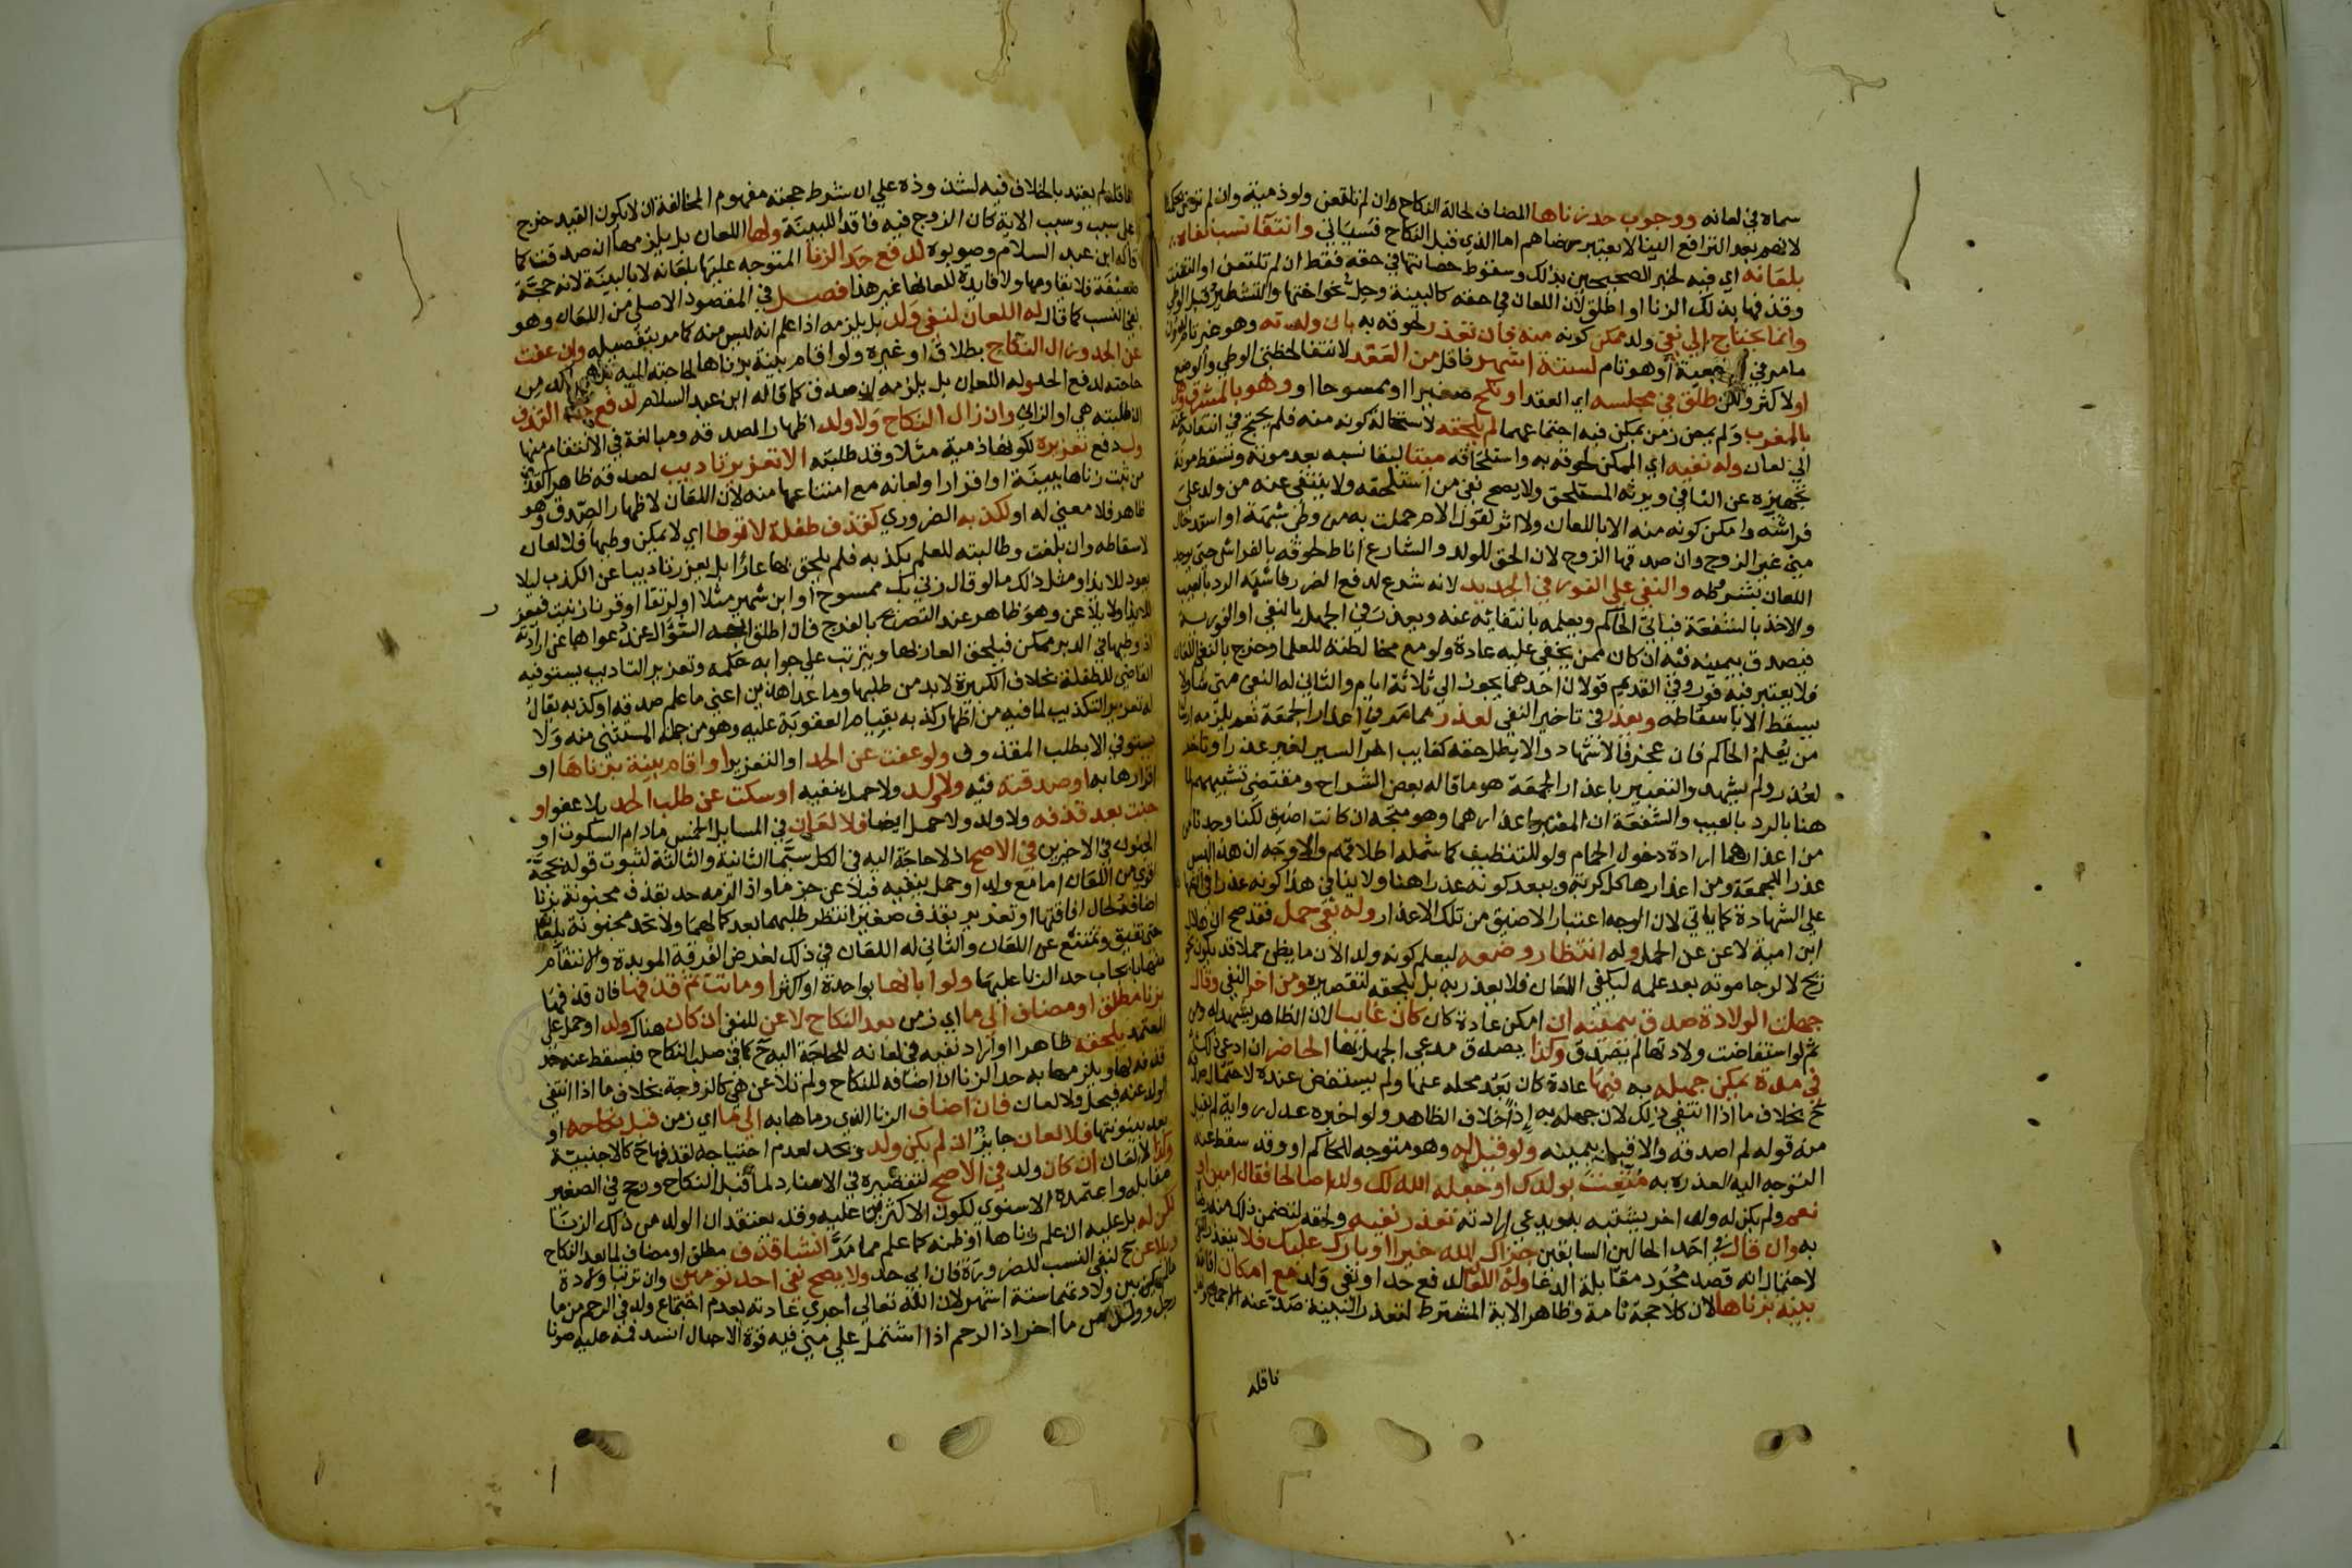 سماه في لعانه ووجوب حد زناها المضاف لحالة النكاح وان لم تلتعن ولو ذمية وان لم ترض بحكمنا
لانهم بعد الترافع الينا لا يعتبر رضاهم اما الذي قبل النكاح فسياتي وانتفا نسب نفاه
بلعانه اي فيه لخبر الصحيحين بذلك وسقوط حصانتها في حقه فقط ان لم تلتعن او التعنت
وقذفها بذلك الزنا او اطلق لان اللعان في حقه كالبينة وحل نحو اختها والتشطير قبل الوطي
وانما يحتاج الي نفي ولد ممكن كونه منه فان تعذر لحوقه به بان ولدته وهو غير تام
مامر في الرجعة او وهو تام لستة اشهر فاقل من العقد لانتفا لحظتي الوطي والوضع
او لاكثر ولكن طلق في مجلسه اي العقد او نكح صغيرا او ممسوحا او وهو بالمشرق وهي
بالمغرب ولم يمض زمن يمكن فيه اجتماعهما لم يلحقه لاستحالة كونه منه فلم يحتج في انتفائه عنه
الي لعان وله نفيه اي الممكن لحوقه به واستلحاقه ميتا لبقا نسبه بعد موته وتسقط مونة
تجهيزه عن النافي ويرثه المستلحق ولا يصح نفي من استلحقه ولا ينتفي عنه من ولد علي
فراشه وامكن كونه منه الا باللعان ولا اثر لقول الام حملت به من وطي شبهة او استدخال
مني غير الزوج وان صدقها الزوج لان الحق للولد والشارع اناط لحوقه بالفراش حتي يوجد
اللعان بشرطه والنفي علي الفور في الجديد لانه شرع لدفع الضرر فاشبه الرد بالعيب
والاخذ بالشفعة فياتي الحاكم ويعلمه بانتفائه عنه ويعذر في الجهل بالنفي او الفورية
فيصدق بيمينه فيه ان كان ممن يخفي عليه عادة ولو مع مخالطته للعلما وخرج بالنفي اللعان
فلا يعتبر فيه فور وفي القديم قولان احدهما يجوز الي ثلاثة ايام والثاني له النفي متي شا ولا
يسقط الا باسقاطه ويعذر في تاخير النفي لعذر مما مر في اعذار الجمعة نعم يلزمه ارسال
من يعلم الحاكم فان عجز فالاشهاد والا بطل حقه كغايب اخر السير لغير عذر او تاخر
لعذر ولم يشهد والتعبير باعذار الجمعة هو ما قاله بعض الشراح ومقتضي تشبيههم لما
هنا بالرد بالعيب والشفعة ان المعتبر اعذارهما وهو متجه ان كانت اضيق لكنا وجدنا
من اعذارهما ارادة دخول الحمام ولو للتنظيف كما شمله اطلاقهم والاوجه ان هذا ليس
عذرا للجمعة ومن اعذارها اكل كريه ويبعد كونه عذرا هنا ولا ينافي هذا كونه عذرا في
علي الشهادة كما ياتي لان الوجه اعتبار الاضيق من تلك الاعذار وله نفي حمل فقد صح ان هلال
ابن امية لاعن عن الحمل وله انتظار وضعه ليعلم كونه ولدا لان ما يظن حملا قد يكون نحو
ريح لا لرجا موته بعد علمه ليكفي اللعان فلا يعذر به بل يلحقه لتقصيره ومن اخر النفي وقال
جهلت الولادة صدق بيمينه ان امكن عادة كان كان غايبا لان الظاهر يشهد له ومن
ثم لو استفاضت ولادتها لم يصدق وكذا يصدق مدعي الجهل بها الحاضر ان ادعي ذلك
في مدة يمكن جهله به فيها عادة كان بعد محله عنها ولم يستفض عنده لاحتمال
ح بخلاف ما اذا انتفي ذلك لان جهله به اذا خلاف الظاهر ولو اخبره عدل رواية لم يقبل
منه قوله لم اصدقه والا قبل بيمينه ولو قيل له وهو متوجه للحاكم او وقد سقط عنه
التوجه اليه لعذر به متعت بولدك او جعله الله لك ولدا صالحا فقال امين او
نعم ولم يكن له ولد اخر يشتبه به ويدعي ارادته تعذر نفيه ولحقه لتضمن ذلك منه
به وان قال في احد الحالين السابقين جزاك الله خيرا او بارك عليك فلا يتعذر
لاحتمال انه قصد مجرد مقابلة الدعا وله اللعان لدفع حد او نفي ولد مع امكان اقامة
بينة بزناها لان كلا حجة تامة وظاهر الاية المشترط لتعذر البينة صد عنه الاجماع
ناقله
ناقله لم يعتد بالخلاف فيه لشذوذه علي ان شرط حجية مفهوم المخالفة ان لا يكون القيد خرج
علي سبب وسبب الاية كان الزوج فيه فاقدا للبينة ولها اللعان بل يلزمها ان صدقت كما
قاله ابن عبد السلام وصوبوه لدفع حد الزنا المتوجه عليها بلعانه لا بالبينة لانه حجة
ضعيفة فلا تقاومها ولا فايدة للعانها غير هذا فصل في المقصود الاصلي من اللعان وهو
نفي النسب كما قال له اللعان لنفي ولد بل يلزمه اذا علم انه ليس منه كما مر بتفصيله وان عفت
عن الحد وزال النكاح بطلاق او غيره ولو اقام بينة بزناها لحاجته اليه بل هي اكد من
حاجته لدفع الحد وله اللعان بل يلزمه ان صدق كما قاله ابن عبد السلام لدفع حد القذف
ان طلبته هي او الزاني وان زال النكاح ولا ولد اظهارا لصدقه ومبالغة في الانتقام منها
ولدفع تعزيره لكونها ذمية مثلا وقد طلبته الا تعزير تاديب لصدقه ظاهرا كقذف
من ثبت زناها ببينة او اقرار او لعانه مع امتناعها منه لان اللعان لاظهار الصدق وهو
ظاهر فلا معني له او لكذبه الضروري كقذف طفلة لا توطا اي لا يمكن وطيها فلا لعان
لاسقاطه وان بلغت وطالبته للعلم بكذبه فلم يلحق بها عارا بل يعزر تاديبا عن الكذب ليلا
يعود للايذا ومثل ذلك ما لو قال زني بك ممسوح او ابن شهر مثلا او لرتقا او قرنا زنيت فيعزر
للايذا ولا يلاعن وهو ظاهر عند التصريح بالفرج فان اطلق اتجه السؤال عند دعواها عن ارادته
اذ وطيها في الدبر ممكن فيلحق العار بها ويترتب علي جوابه حكمه وتعزير التاديب يستوفيه
القاضي للطفلة بخلاف الكبيرة لا بد من طلبها وما عدا هذين اعني ما علم صدقه او كذبه يقال
له تعزير التكذيب لما فيه من اظهار كذبه بقيام العقوبة عليه وهو من جملة المستثني منه ولا
يستوفي الا بطلب المقذوف ولو عفت عن الحد او التعزير او اقام بينة بزناها او
اقرارها به او صدقته فيه ولا ولد ولا حمل ينفيه او سكتت عن طلب الحد بلا عفو او
جنت بعد قذفه ولا ولد ولا حمل ايضا فلا لعان في المسايل الخمس ما دام السكوت او
الجنون في الاخيرين في الاصح اذ لا حاجة اليه في الكل سيما الثانية والثالثة لثبوت قوله بحجة
اقوي من اللعان اما مع ولد او حمل ينفيه فيلاعن جزما واذا لزمه حد بقذف مجنونة بزنا
اضافه لحال افاقتها او تعزير بقذف صغيرة انتظر طلبهما بعد كمالهما ولا تحد مجنونة بلعانه
حتي تفيق وتمتنع عن اللعان والثاني له اللعان في ذلك لغرض الفرقة الموبدة والانتقام
منها بايجاب حد الزنا عليها ولو ابانها بواحدة او اكثر او ماتت ثم قذفها فان قذفها
بزنا مطلق او مضاف الي ما اي زمن بعد النكاح لاعن للنفي ان كان هناك ولد او حمل علي
المعتمد يلحقه ظاهرا واراد نفيه في لعانه للحاجة اليه ح كما في صلب النكاح فيسقط عنه حد
قذفه لها ويلزمها به حد الزنا ان اضافه للنكاح ولم تلاعن هي كالزوجة بخلاف ما اذا انتفي
الولد عنه فيحد ولا لعان فان اضاف الزنا الذي رماها به الي ما اي زمن قبل نكاحه او
بعد بينونتها فلا لعان جايز ان لم يكن ولد ويحد لعدم احتياجه لقذفها ح كالاجنبية
وكذا لا لعان ان كان ولد في الاصح لتقصيره في الاسناد لما قبل النكاح ورجح في الصغير
مقابله واعتمده الاسنوي لكون الاكثرين عليه وقد يعتقد ان الولد من ذلك الزنا
لكن له بل عليه ان علم زناها او ظنه كما علم مما مر انشا قذف مطلق او مضاف لما بعد النكاح
ويلاعن ح لنفي النسب للضرورة فان ابي حد ولا يصح نفي احد توءمين وان ترتبا ولادة
مالم يكن بين ولادتيهما ستة اشهر لان الله تعالي اجري عادته بعدم اجتماع ولد في الرحم من ما
رجل وولد من ما اخر اذ الرحم اذا اشتمل علي مني فيه قوة الاحبال انسد فمه عليه صونا